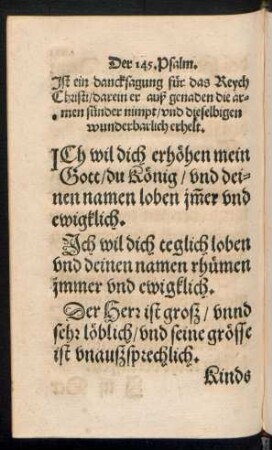 Der 145. Psalm.
Ist ein dancksagung für das Reych
Christi/darein er auß genaden die ar-
men sünder nimpt/vnd dieselbigen
wunderbarlich erhelt.
ICh wil dich erhöhen mein
Gott/du König/vnd dei-
nen namen loben jm̃er vnd
ewigklich.
Ich wil dich teglich loben
vnd deinen namen rhümen
jmmer vnd ewigklich.
Der Herr ist groß/vnnd
sehr löblich/vnd seine grösse
ist vnaußsprechlich.
Kinds